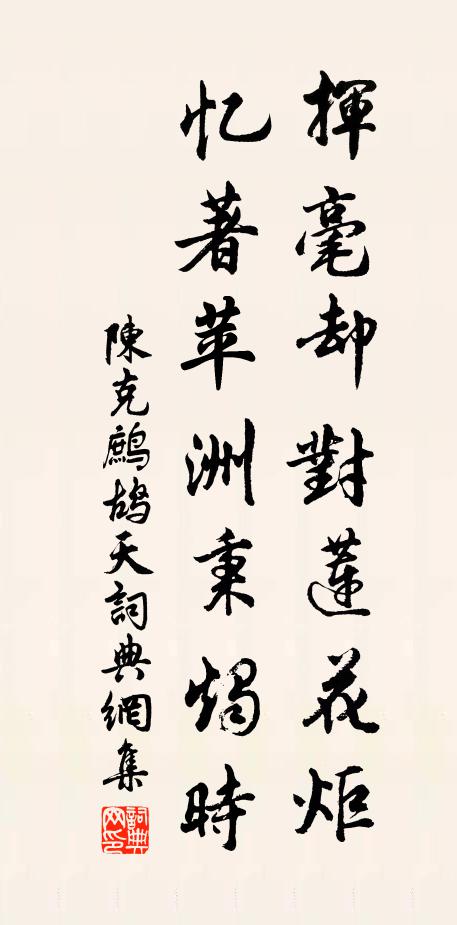 揮毫却對蓮花炬
忆著苹洲秉燭時
陳克鷓鴣天詞典網集
詞典網印